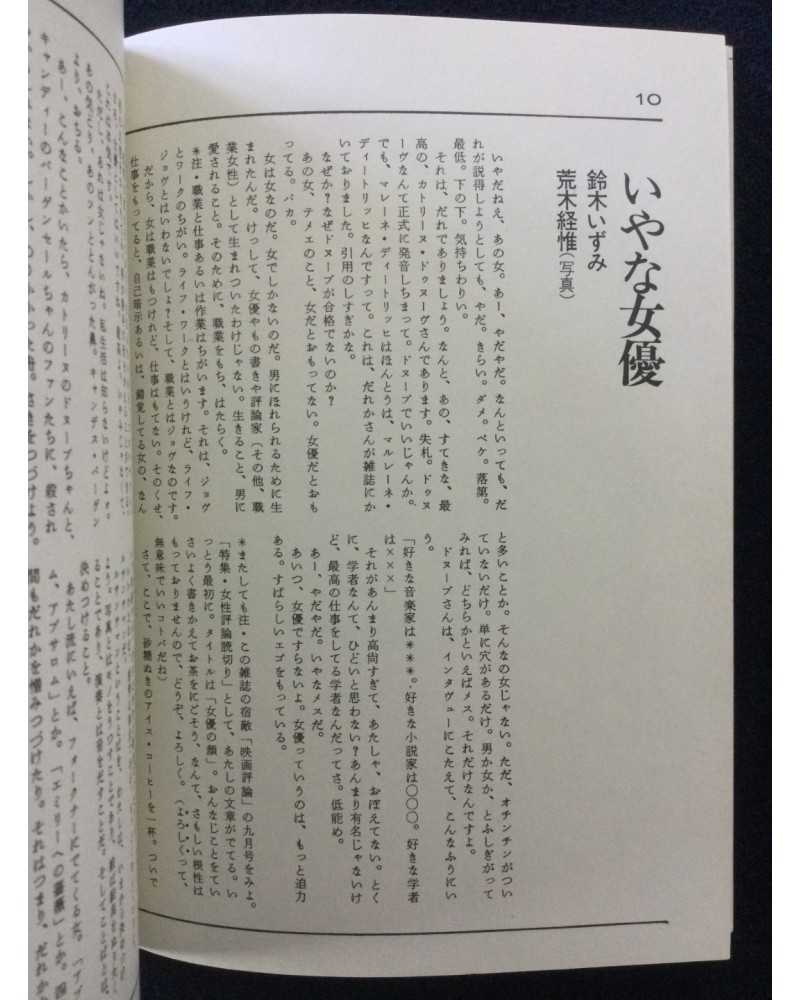 10
いやな女優
鈴木いずみ
荒木経惟(写真)
いやだねえ、あの女。あー、やだやだ。なんといっても、だ
れが説得しようとしても、やだ。きらい。ダメ。ペケ。落第。
最低。下の下。気持ちわりい。
それは、だれでありましょう。なんと、あの、すてきな、最
高の、カトリーヌ・ドゥヌーヴさんであります。失礼。ドゥヌ
ーヴなんて正式に発音しちまって。ドヌーブでいいじゃんか。
でも、マレーネ・ディートリッヒはほんとうは、マルレーネ・
ディートリッヒなんですって。これは、だれかさんが雑誌にか
いておりました。引用のしすぎかな。
なぜか？なぜドヌーブが合格でないのか？
あの女、テメェのこと、女だとおもってない。女優だとおも
ってる。バカ。
女は女なのだ。女でしかないのだ。男にほれられるために生
まれたんだ。けっして、女優やもの書きや評論家（その他、職
業女性）として生まれついたわけじゃない。生きること、男に
愛されること。そのために、職業をもち、はたらく。
＊注・職業と仕事あるいは作業はちがいます。それは、ジョヴ
とワークのちがい。ライフ・ワークとはいうけれど、ライフ・
ジョヴとはいわないでしょ？そして、職業とはジョヴなのです。
だから、女は職業はもつけれど、仕事はもてない。そのくせ、
仕事をもってると、自己暗示あるいは、錯覚してる女の、なん
と多いことか。そんなの女じゃない。ただ、オチンチンがつい
ていないだけ。単に穴があるだけ。男か女か、とふしぎがって
みれば、どちらかといえばメス。それだけなんですよ。
ドヌーブさんは、インタヴューにこたえて、こんなふうにい
う。
「好きな音楽家は＊＊＊。好きな小説家は〇〇〇。好きな学者
は×××」
それがあんまり高尚すぎて、あたしゃ、おぼえてない。とく
に、学者なんて、ひどいと思わない？あんまり有名じゃないけ
ど、最高の仕事をしてる学者なんだってさ。低能め。
あー、やだやだ。いやなメスだ。
あいつ、女優ですらないよ。女優っていうのは、もっと迫力
ある。すばらしいエゴをもっている。
＊またしても注・この雑誌の宿敵「映画評論」の九月号をみよ。
「特集・女性評論読切り」として、あたしの文章がでてる。い
っとう最初に。タイトルは「女優の顔」。おんなじことをてい
さいよく書きかえてお茶をにごそう、なんて、さもしい根性は
もっておりませんので、どうぞ、よろしく。（よろしくって、
無意味でいいコトバだね）
さて、ここで、砂糖ぬきのアイス・コーヒーを一杯。ついで
より、おちる。
あー、こんなことかいたら、カトリーヌのドヌーブちゃんと、
キャンディーのベーゲンセールちゃんのファンたちに、殺され
決めつけること。
あたし流にいえば、フォークナーにでてくる女。「アブ
ム、アブサロム」とか。「エミリーへの薔薇」とか。
間もだれかを憎みつづけたり。それはつまり、だれか